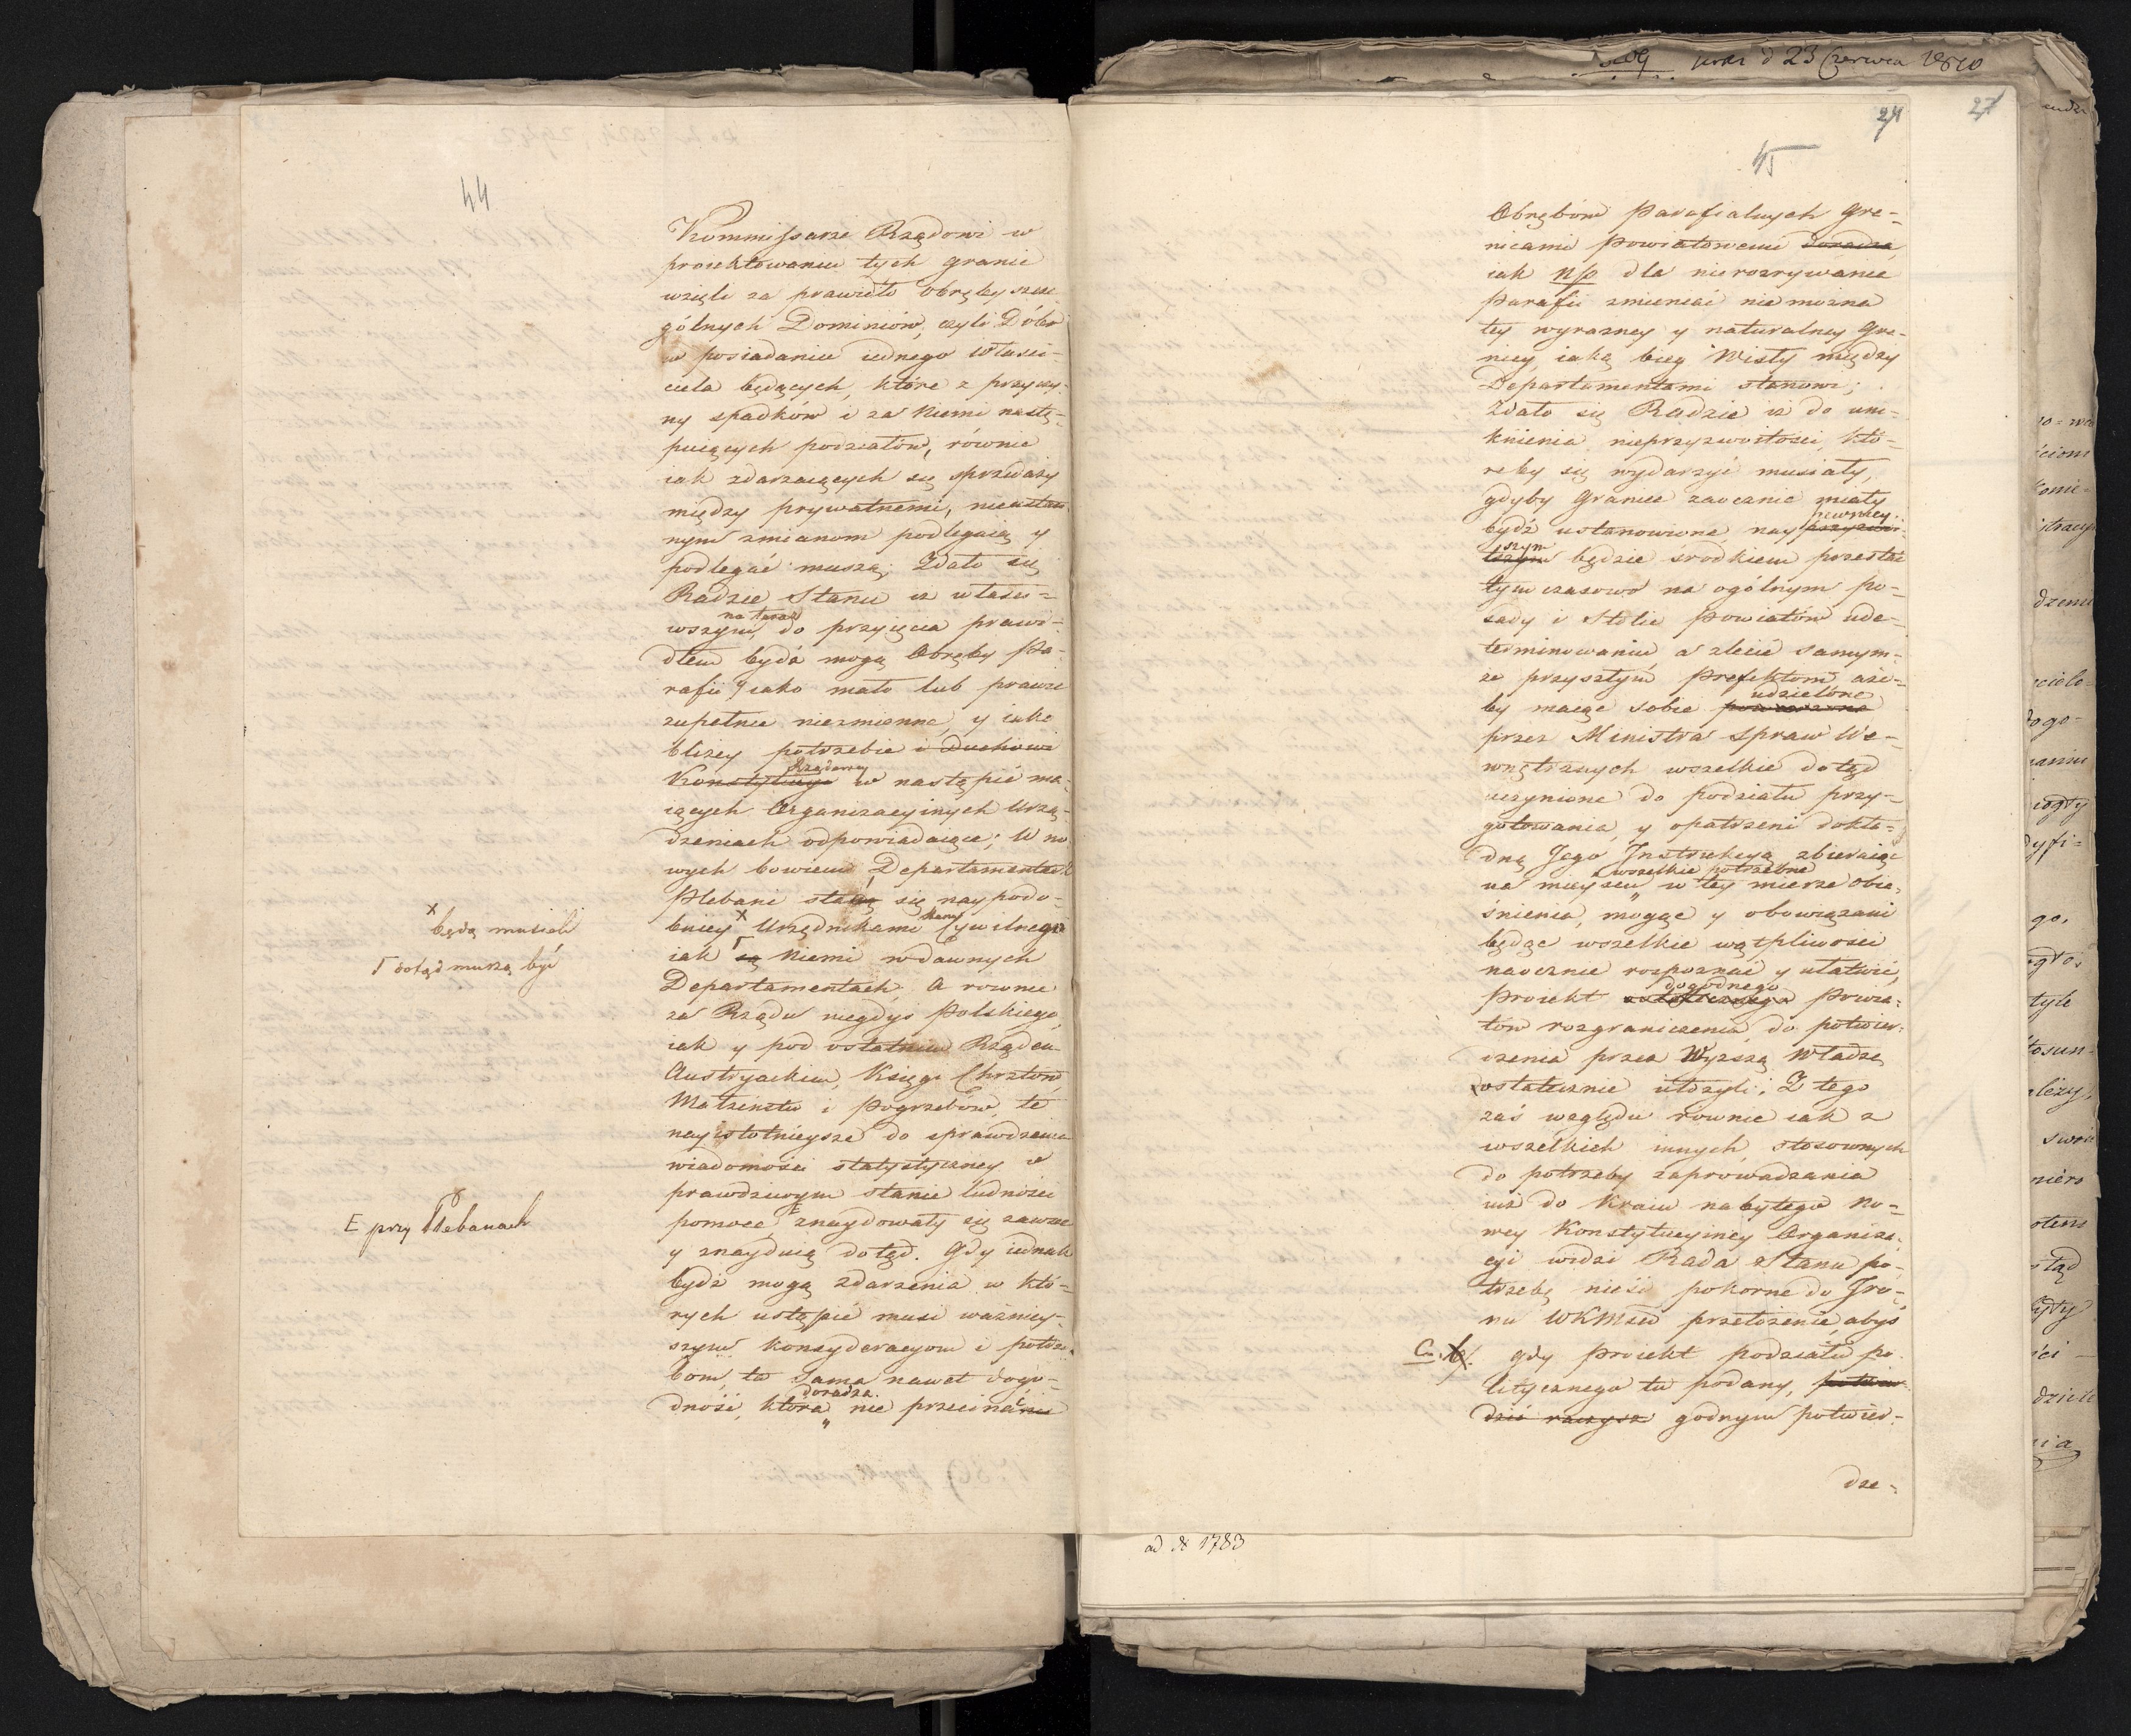 44
Kommissarze Rządowi w
proiektowaniu tych granic
wzięli za prawidło obręby szcze
gólnych Dominiów, czyli Dóbr
w posiadaniu iednego właści-
ciela będących, które z przyczy-
ny spadków i za niemi nastę-
puiących podziałów, równie
iak zdarzaiących się sprzedaży
między prywatnemi, nieustan
nym zmianom podlegaią y
podlegać muszą; Zdało się
Radzie Stanu iż właści-
na teraz
wszym, do przyięcia prawi-
dłem bydź mogą Obręby Pa-
rafii iako mało lub prawie
zupełnie niezmienne, y iako
bliżey potrzebie i Duchowi
Rządowey
Konstytucyi w nastąpić ma-
iących Organizacyinych Urzą-
dzeniach odpowiadaiące; W no
wych bowiem Departamentach
Plebani staną się naypodo-
x będą musieli
bniey x Urzędnikami stanu Cywilnego
Γ dotąd muszą być
iak Γ są niemi w dawnych
Departamentach. A rownie
za Rządu niegdyś Polskiego,
iak y pod ostatnim Rządem
Austryackim, Księgi Chrztow,
Małżeństw i Pogrzebów, te
nayistotnieysze do sprawdzenia
wiadomości statystyczney o
prawdziwym stanie ludności
E przy Plebanach
pomoce, E znaydowały się zawsze
y znayduią dotąd. Gdy iednak
bydź mogą zdarzenia w któ-
rych ustąpić musi ważniey-
szym konsyderacyom i potrze-
bom, ta sama nawet dogo-
doradza.
dność, która nie przecinać nie
23 Czerwca 1810
24
27
45
Obrębów Parafialnych gra-
nicami powiatowemi doradza,
iak np dla nierozrywania
Parafii zmieniać nie można
tey wyrazney y naturalney gra-
nicy, iaką bieg Wisły między
Departamentami stanowi;
Zdało się Radzie iż do uni-
knienia nieprzyzwoitości, któ-
reby się wydarzyć musiały,
gdyby granice zaocznie miały
bydź ustanowione, nay pewniey-
szym będzie środkiem przestać
tymczasowo na ogólnym po-
sady i Stolic Powiatów ude-
terminowaniu a zlecić samym-
że przyszłym Prefektom aże-
udzielone
by maiąc sobie
przez Ministra Spraw We-
wnętrznych wszelkie dotąd
uczynione do podziału przy-
gotowania, y opatrzeni dokła-
dną Jego Instrukcyą zbieraiąc
wszelkie potrzebne
na mieyscu w tey mierze obia-
śnienia, mogąc y obowiązani
będąc wszelkie wątpliwości
naocznie rozpoznać y ułatwić,
dogodnego
Proiekt ostatecznego Powia-
tow rozgraniczenia, do potwier-
dzenia przez Wyższą Władzę
ostatecznie ułożyli; Z tego
zaś względu rownie iak z
wszelkich innych stosownych
do potrzeby zaprowadzania
iuż do Kraiu nabytego no-
wey Konstytucyiney Organiza-
cyi widzi Rada Stanu po-
trzebę nieść pokorne do Tro-
nu WKMści przełożenie, abyś
C. b. gdy Proiekt podziału po-
litycznego tu podany, potwier-
dzić raczysz godnym potwier-
dze-
ad N 1783